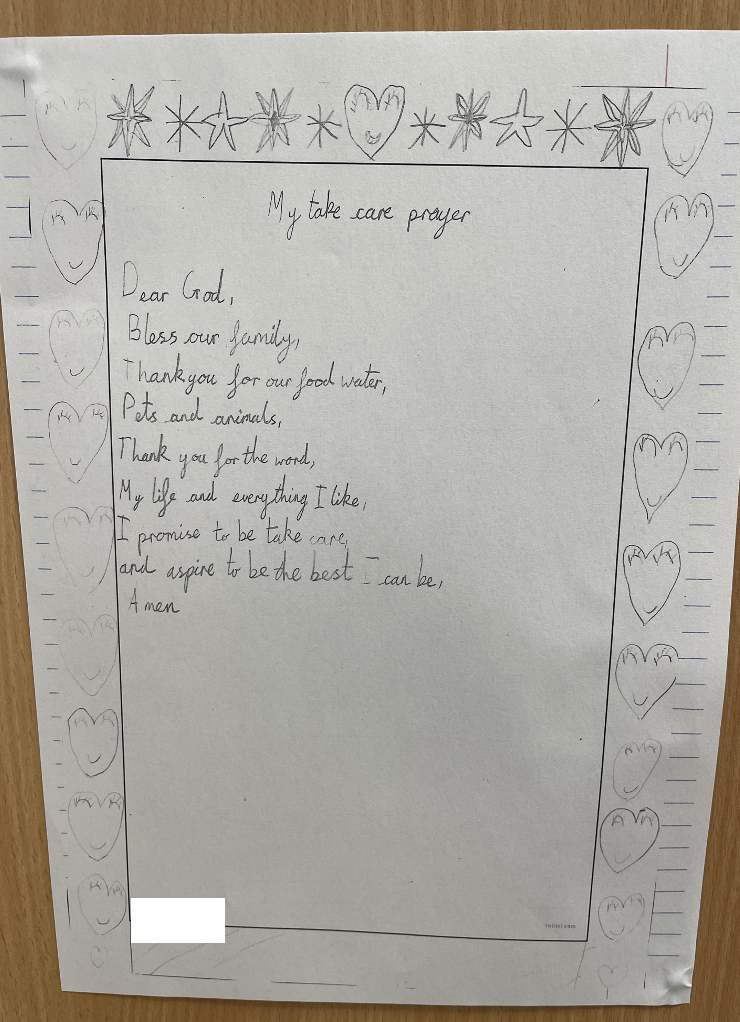 My take care prayer
Dear God,
Bless our family,
Thankyou for our food water,
Pets and animals,
Thank you for the word,
My life and everything I like,
I promise to be take care,
and aspire to be the best I can be,
Amen